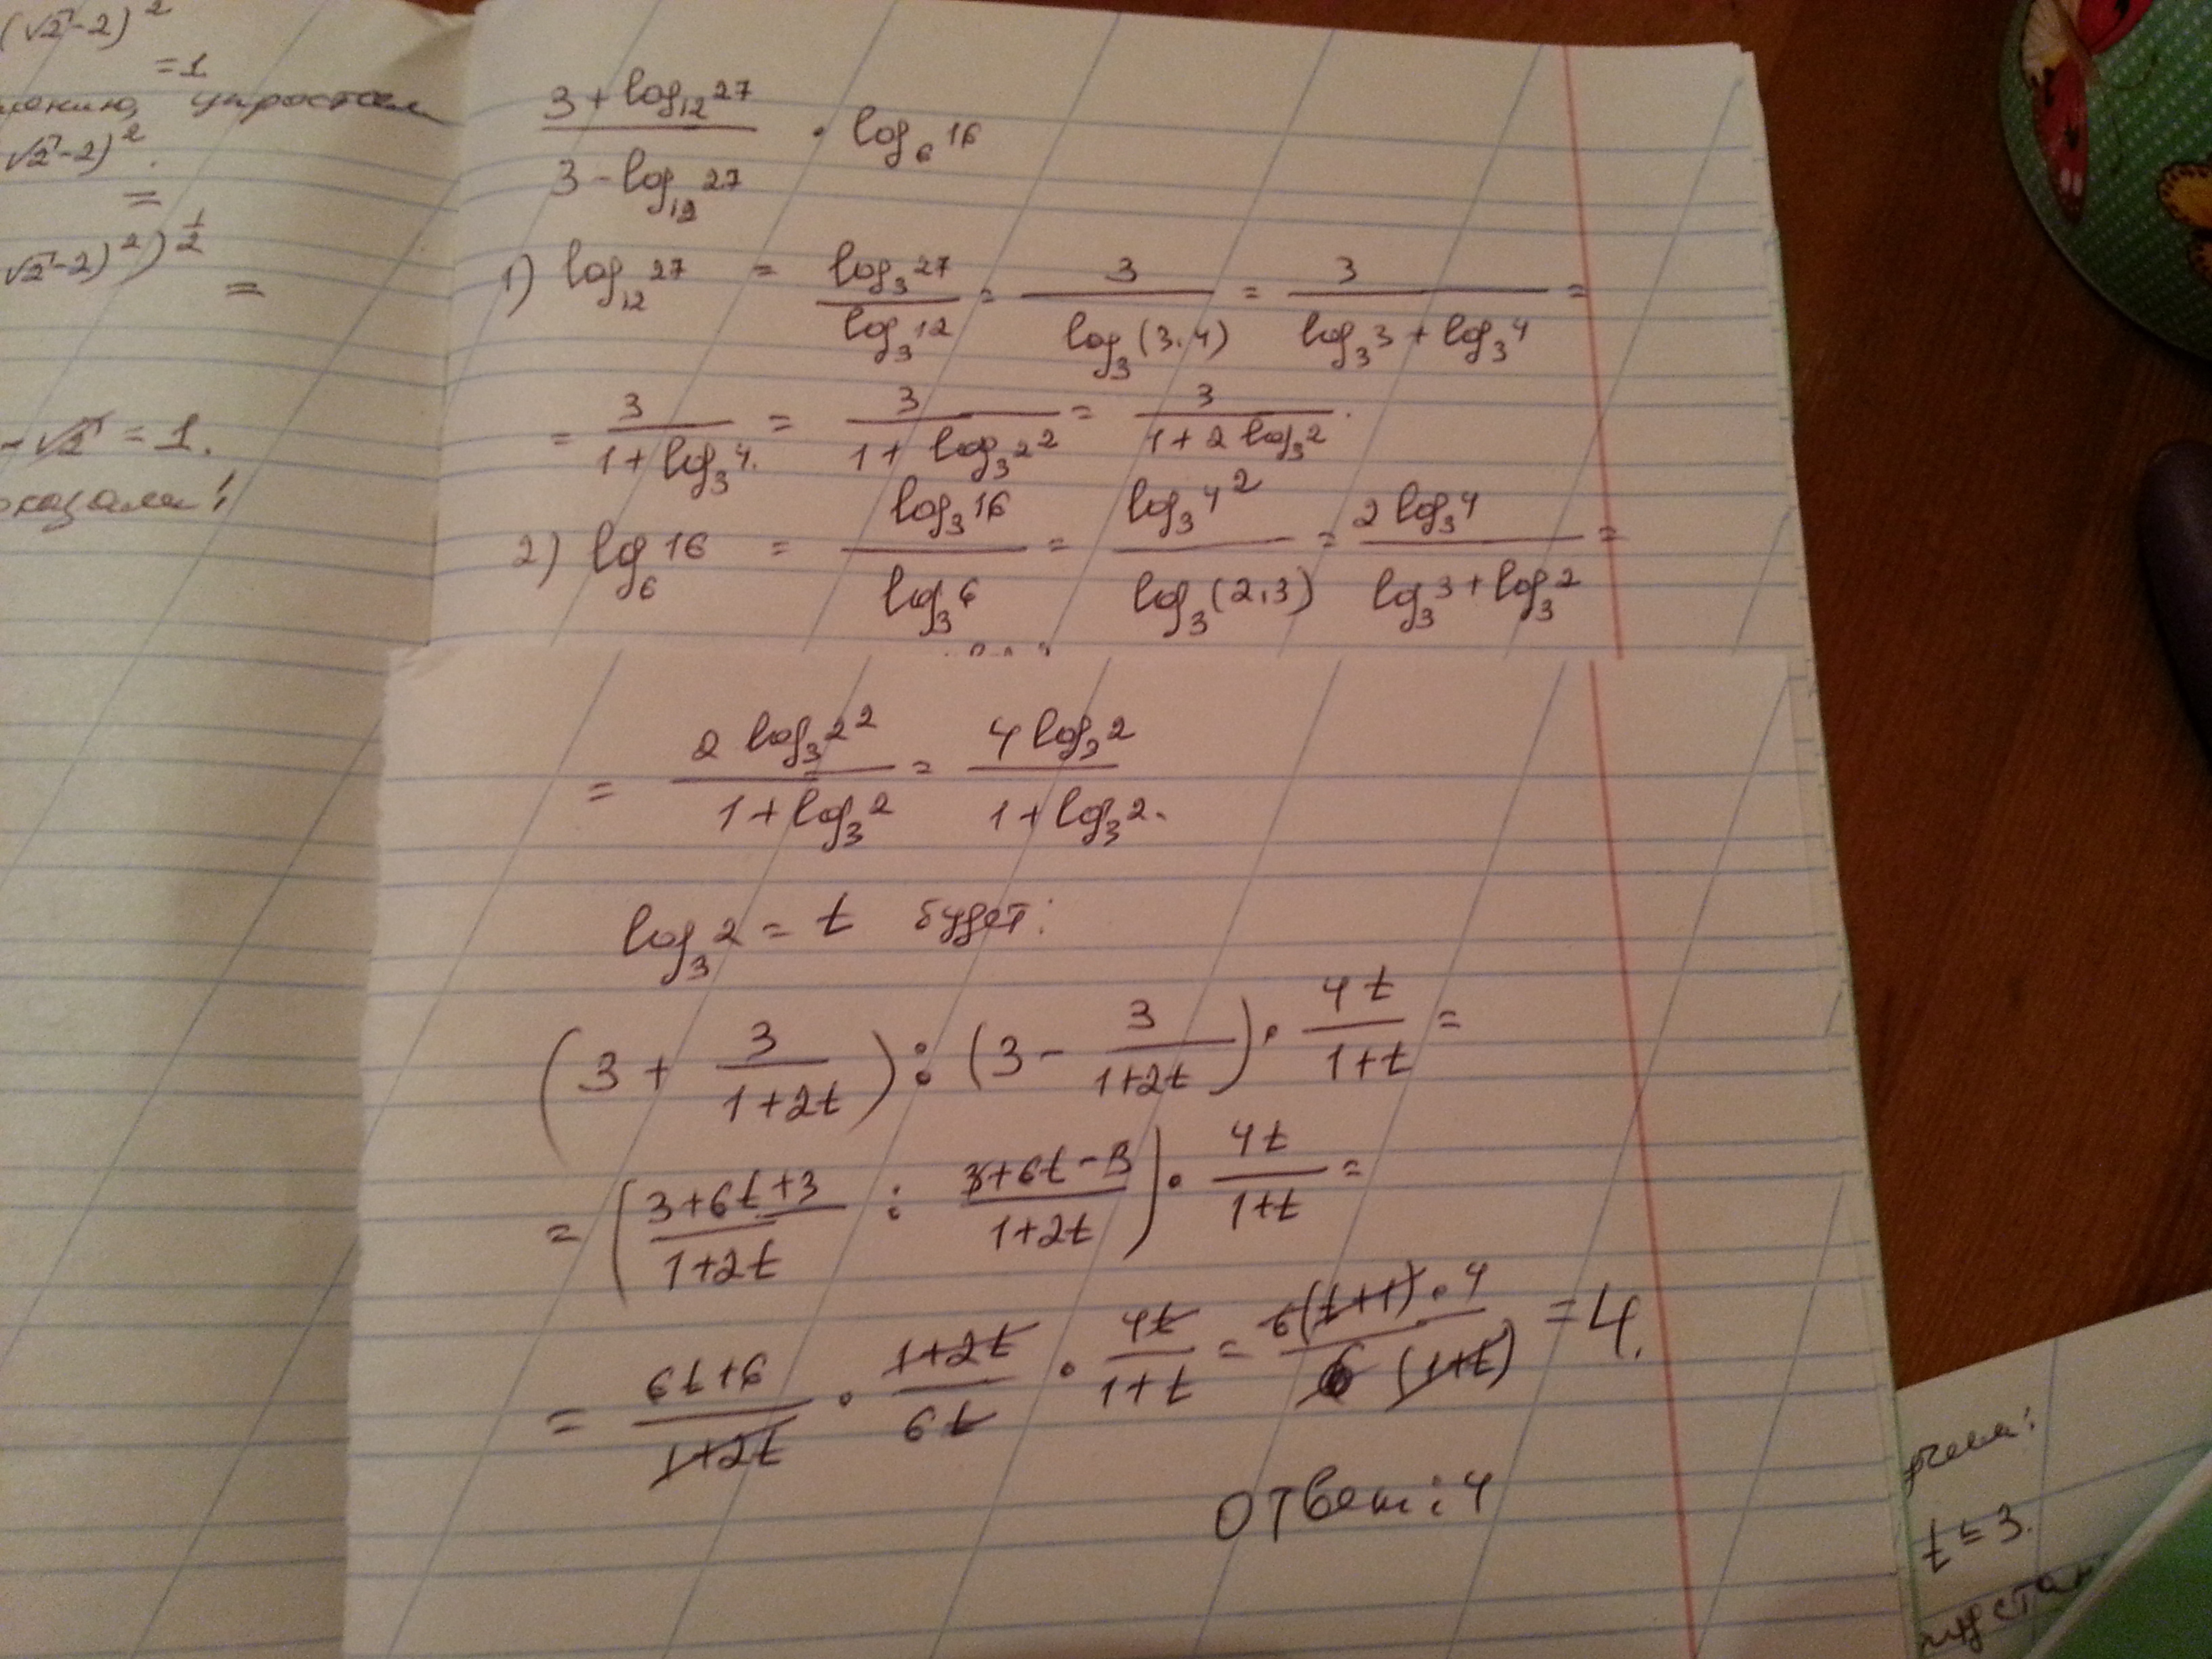 (√2-2)²
=1
упростим
√2-2)².
=
√2-2)²)^(1/2)
=
-√2 = 1.
(3 + log₁₂27)/(3 - log₁₂27) · log₆16
1) log₁₂27 = (log₃27)/(log₃12) = 3/(log₃(3·4)) = 3/(log₃3 + log₃4) =
= 3/(1 + log₃4) = 3/(1 + log₃2²) = 3/(1 + 2 log₃2).
2) log₆16 = (log₃16)/(log₃6) = (log₃4²)/(log₃(2·3)) = (2 log₃4)/(log₃3 + log₃2) =
= (2 log₃2²)/(1 + log₃2) = (4 log₃2)/(1 + log₃2).
log₃2 = t будет:
(3 + 3/(1+2t)) : (3 - 3/(1+2t)) · 4t/(1+t) =
= ((3+6t+3)/(1+2t) : (3+6t-3)/(1+2t)) · 4t/(1+t) =
= (6t+6)/(1+2t) · (1+2t)/(6t) · 4t/(1+t) = (6(t+1)·4)/(6(1+t)) = 4.
Ответ: 4
t = 3.